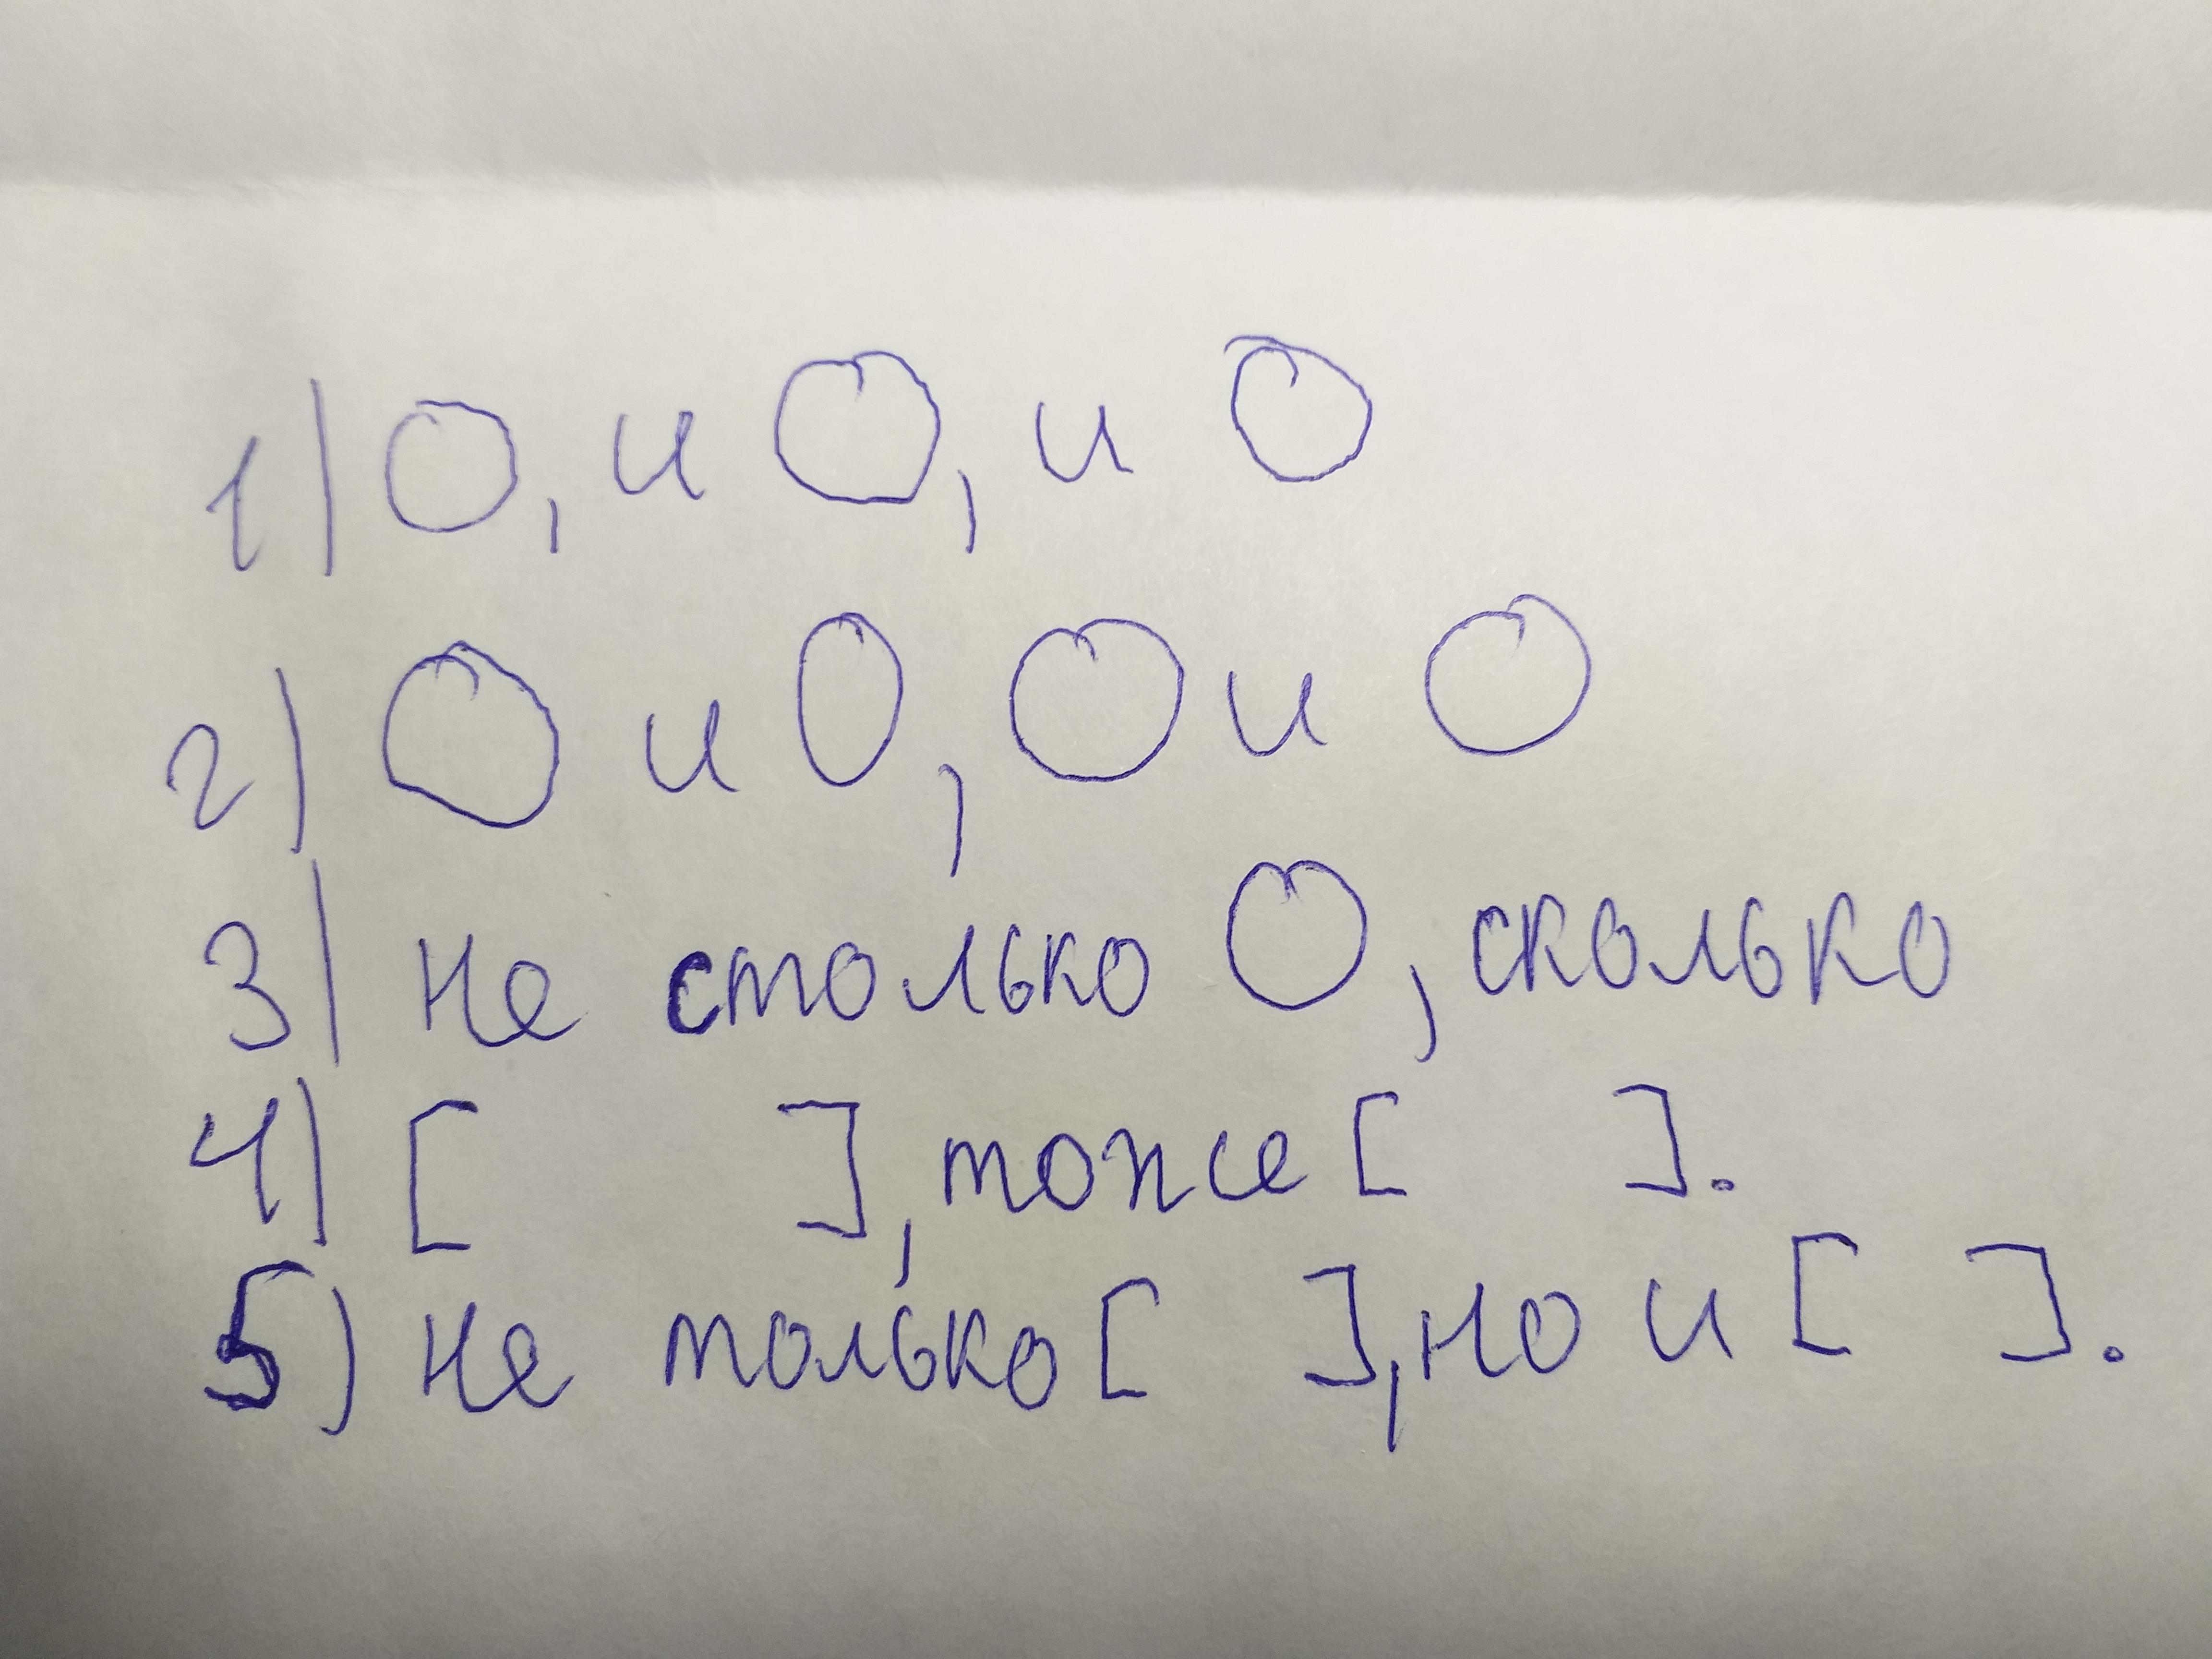 1) О, и О, и О
2) О и О, О и О
3) не столько О, сколько
4) [ ], тоже [ ].
5) не только [ ], но и [ ].